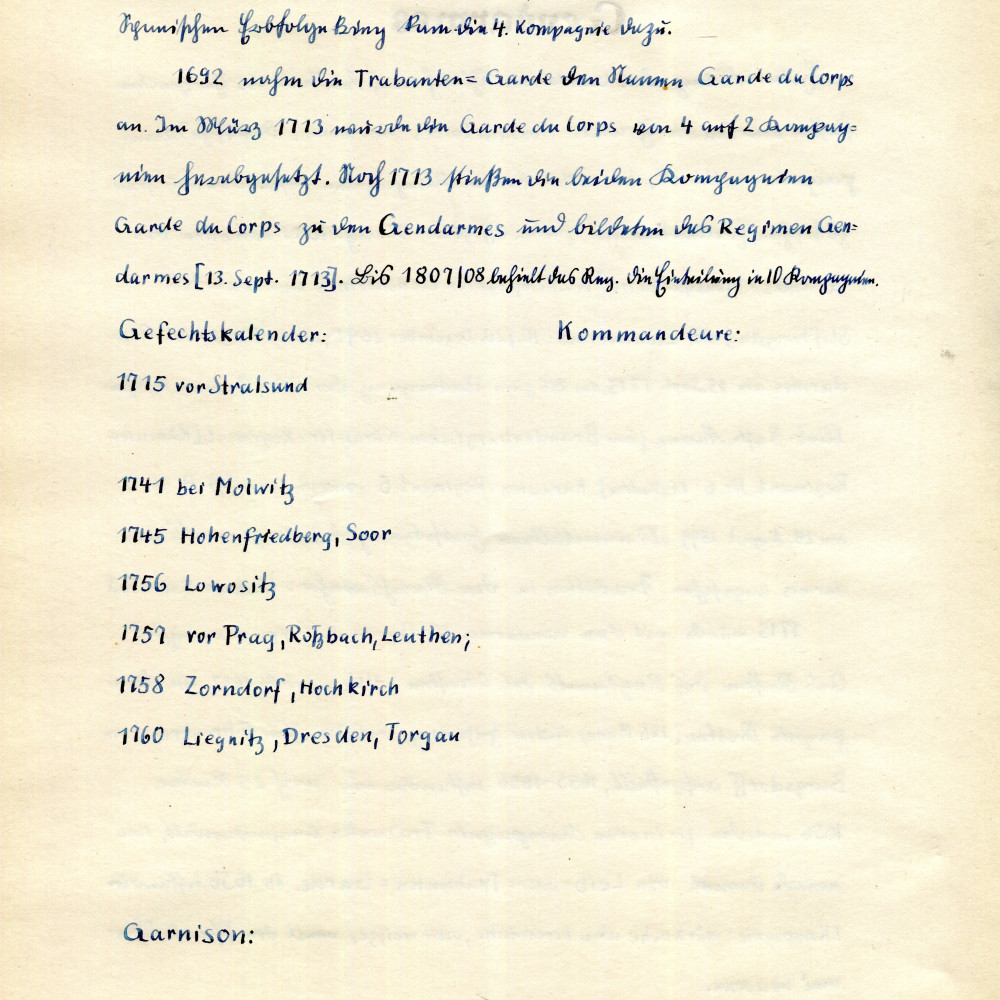 Spanischen Erbfolgekrieg kam die 4. Kompagnie dazu.
1692 nahm die Trabanten= Garde den Namen Garde du Corps
an. Im März 1713 wurde die Garde du Corps von 4 auf 2 Kompag=
nien herabgesetzt. Noch 1713 stießen die beiden Kompagnien
Garde du Corps zu den Gendarmes und bildeten das Regimen Gen=
darmes [13. Sept. 1713]. Bis 1807/08 behielt das Reg. die Einteilung in 10 Kompagnien.
Gefechtskalender: Kommandeure:
1715 vor Stralsund
1741 bei Molwitz
1745 Hohenfriedberg, Soor
1756 Lowositz
1757 vor Prag, Roßbach, Leuthen;
1758 Zorndorf, Hochkirch
1760 Liegnitz, Dresden, Torgau
Garnison: